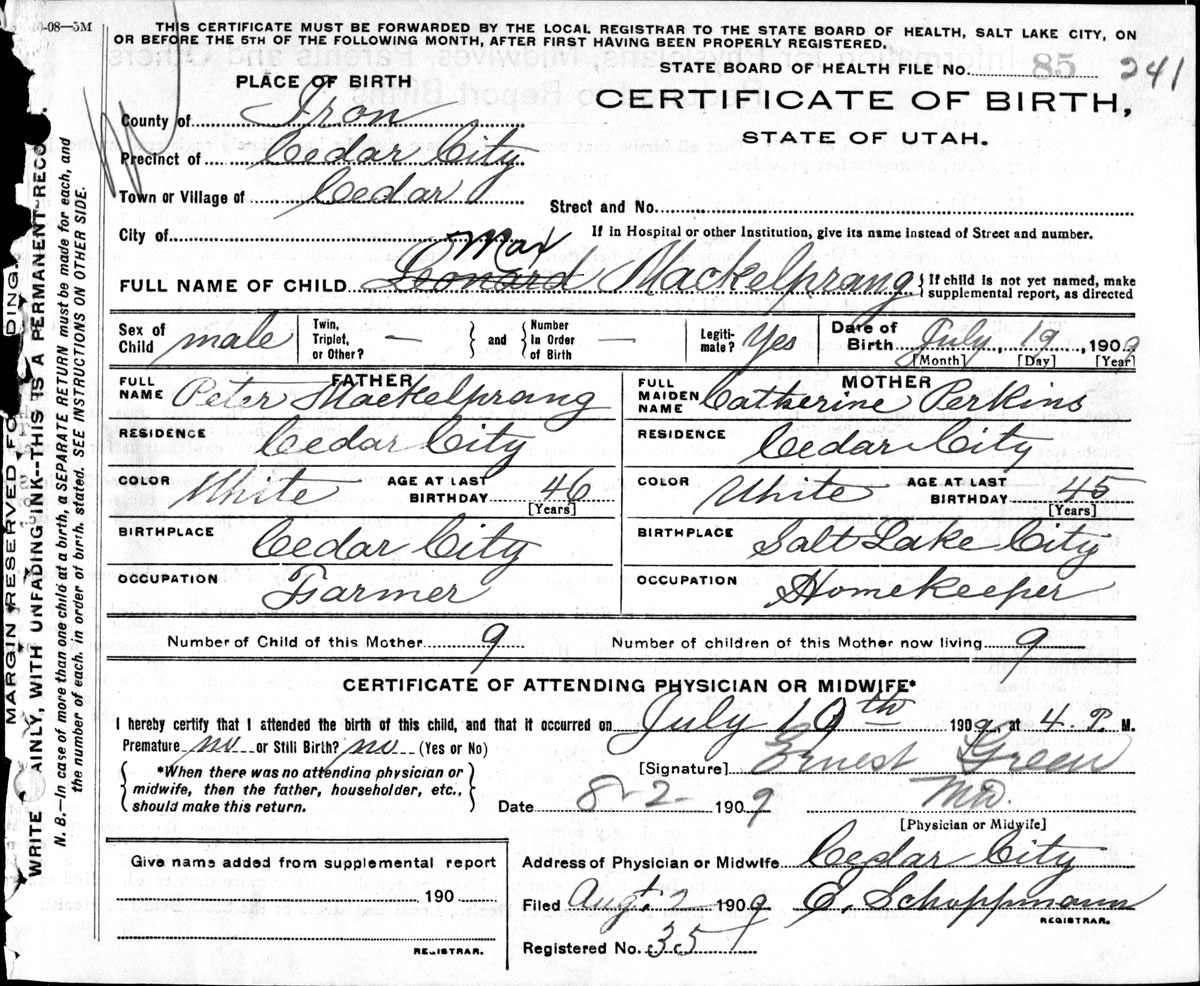 10-08—5M
THIS CERTIFICATE MUST BE FORWARDED BY THE LOCAL REGISTRAR TO THE STATE BOARD OF HEALTH, SALT LAKE CITY, ON
OR BEFORE THE 5TH OF THE FOLLOWING MONTH, AFTER FIRST HAVING BEEN PROPERLY REGISTERED.
STATE BOARD OF HEALTH FILE No. 85 241
PLACE OF BIRTH
CERTIFICATE OF BIRTH,
STATE OF UTAH.
County of Iron
Precinct of Cedar City
Town or Village of Cedar
Street and No.
City of
If in Hospital or other Institution, give its name instead of Street and number.
Max
FULL NAME OF CHILD Leonard Mackelprang } If child is not yet named, make
supplemental report, as directed
Sex of Child male
Twin, Triplet, or Other? —
and
Number In Order of Birth —
Legiti- mate? Yes
Date of Birth July, 19, 1909
[Month] [Day] [Year]
FATHER
FULL NAME Peter Mackelprang
RESIDENCE Cedar City
COLOR White AGE AT LAST BIRTHDAY 46
[Years]
BIRTHPLACE Cedar City
OCCUPATION Farmer
MOTHER
FULL MAIDEN NAME Catherine Perkins
RESIDENCE Cedar City
COLOR White AGE AT LAST BIRTHDAY 45
[Years]
BIRTHPLACE Salt Lake City
OCCUPATION Homekeeper
Number of Child of this Mother 9 Number of children of this Mother now living 9
CERTIFICATE OF ATTENDING PHYSICIAN OR MIDWIFE*
I hereby certify that I attended the birth of this child, and that it occurred on July 19th 1909, at 4 P. M.
Premature no or Still Birth? no (Yes or No)
*When there was no attending physician or
midwife, then the father, householder, etc.,
should make this return.
[Signature] Ernest Green
Date 8-2- 1909 MD.
[Physician or Midwife]
Give name added from supplemental report
190
REGISTRAR.
Address of Physician or Midwife Cedar City
Filed Aug. 2 1909 E. Schoppmann
REGISTRAR.
Registered No. 35
MARGIN RESERVED FO DING.
WRITE AINLY, WITH UNFADING INK--THIS IS A PERMANENT RECO .
N. B.—In case of more than one child at a birth, a SEPARATE RETURN must be made for each, and
the number of each, in order of birth, stated. SEE INSTRUCTIONS ON OTHER SIDE.